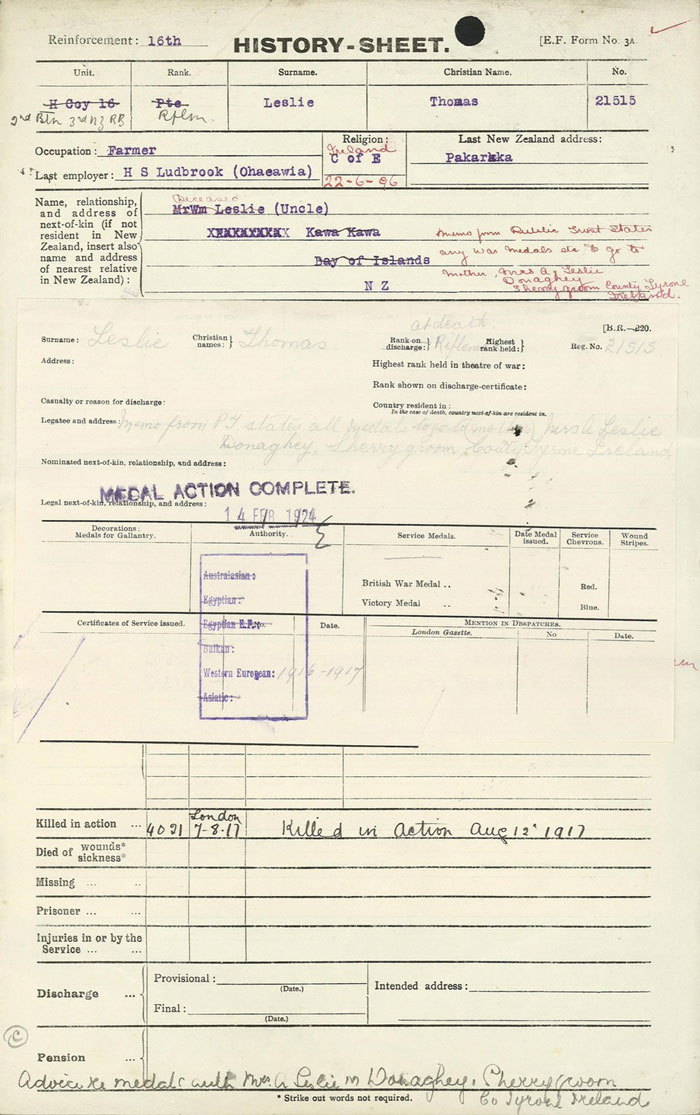 Reinforcement: 16th
HISTORY-SHEET.
[E.F. Form No. 3A
Unit. Rank. Surname. Christian Name. No.
H Coy 16 Pte Leslie Thomas 21515
2nd Btn 3rd NZ RB Rflm.
Occupation: Farmer
Religion: Ireland
C of E
22-6-86
Last New Zealand address:
Pakaraka
Last employer: H S Ludbrook (Ohaeawia)
Name, relationship, and address of next-of-kin (if not resident in New Zealand, insert also name and address of nearest relative in New Zealand):
Deceased
Mr Wm Leslie (Uncle)
Kawa Kawa
Bay of Islands
N Z
Memo from Public Trust States
any War medals etc to go to
mother, Mrs A Leslie
Donaghey
Sherrygroom County Tyrone
Ireland.
[B.R.—220.
Surname: Leslie Christian names: Thomas Rank on discharge: at death Riflem Highest rank held: Reg. No. 21515
Address:
Highest rank held in theatre of war:
Rank shown on discharge-certificate:
Casualty or reason for discharge:
Country resident in:
In the case of death, country next-of-kin are resident in.
Legatee and address: Memo from PT states all medals to go to (mother) Mrs A Leslie
Donaghey, Sherrygroom, County Tyrone Ireland
Nominated next-of-kin, relationship, and address:
MEDAL ACTION COMPLETE.
Legal next-of-kin, relationship, and address:
14 FEB 1924
Decorations: Medals for Gallantry. Authority. Service Medals. Date Medal issued. Service Chevrons. Wound Stripes.
Australasian:
Egyptian:
Egyptian E.F.:
Balkan:
Western European: 1916-1917
Asiatic:
British War Medal ..
Victory Medal ..
Red.
Blue.
Certificates of Service issued. Date.
Mention in Dispatches.
London Gazette. No Date.
Killed in action ... 4031 London 7-8-17 Killed in Action Aug 12 1917
Died of wounds* sickness*
Missing ... ...
Prisoner ... ...
Injuries in or by the Service ... ...
Discharge ... Provisional: (Date.) Intended address:
Final: (Date.)
C
Pension ...
Advice re medals with Mrs A Leslie Donaghey, Sherrygroom
Co Tyrone Ireland
* Strike out words not required.